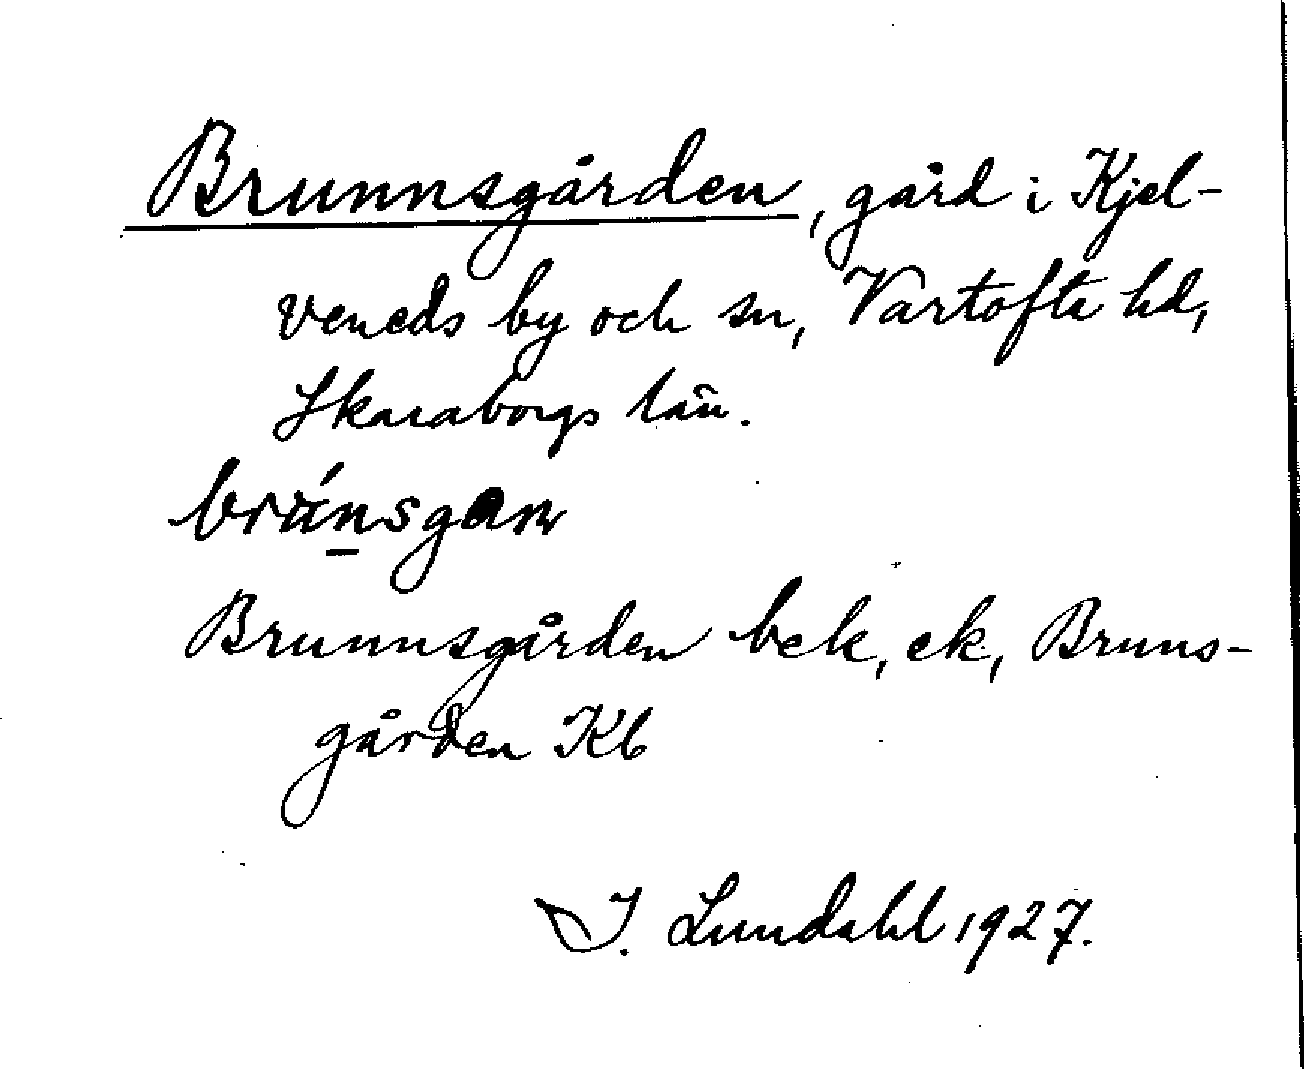 Brunnsgården, gård i Kjel-
veneds by och sn, Vartofta hd,
Skaraborgs län.
Brunnsgården bek, ek, Bruns-
gården Kb
I. Lundahl 1927.